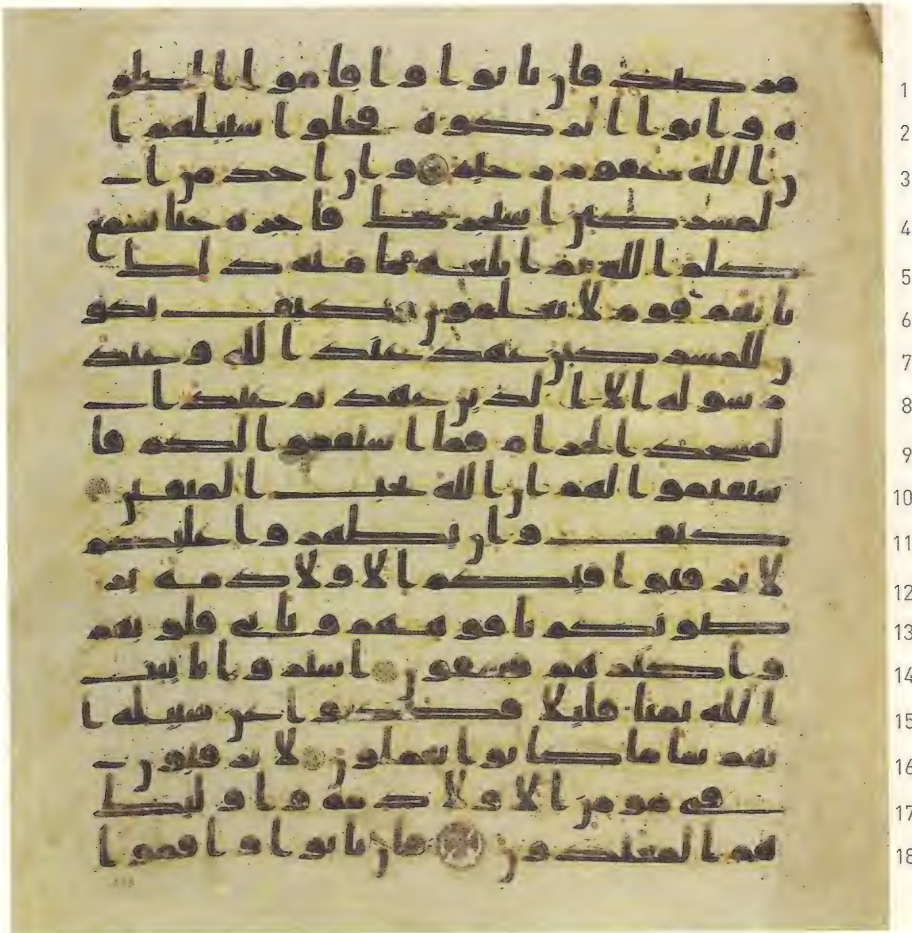 1 مرصد فان تابوا واقاموا الصلو
2 ه واتوا الزكوه فخلوا سبيلهم ا
3 ن الله غفور رحيم وان احد من ا
4 لمشركين استجرك فاجره حتا يسمع
5 كلم الله ثم ابلغه مامنه ذلك
6 بانهم قوم لا يعلمون كيف يكو
7 ن للمشركين عهد عند الله وعند
8 رسوله الا الذين عهدتم عند ا
9 لمسجد الحرام فما استقموا لكم فا
10 ستقيموا لهم ان الله يحب المتقين
11 كيف وان يظهروا عليكم
12 لا يرقبوا فيكم الا ولا ذمه ير
13 ضونكم بافوههم وتابى قلوبهم
14 واكثرهم فسقون اشتروا بايت
15 الله ثمنا قليلا فصدوا عن سبيله ا
16 نهم سا ما كانوا يعملون لا يرقبون
17 في مومن الا ولا ذمه واوليك
18 هم المعتدون فان تابوا واقموا